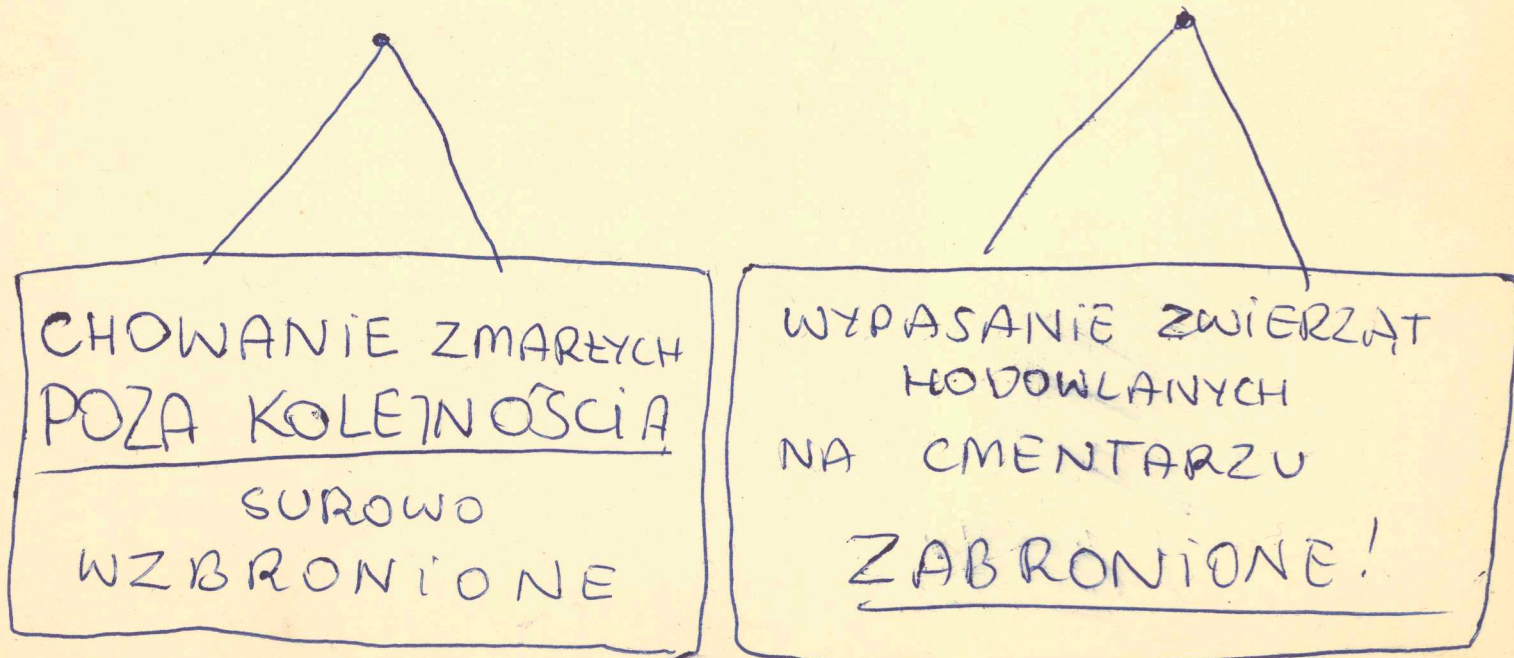 CHOWANIE ZMARŁYCH
POZA KOLEJNOŚCIĄ
SUROWO
WZBRONIONE
WYPASANIE ZWIERZĄT
HODOWLANYCH
NA CMENTARZU
ZABRONIONE!